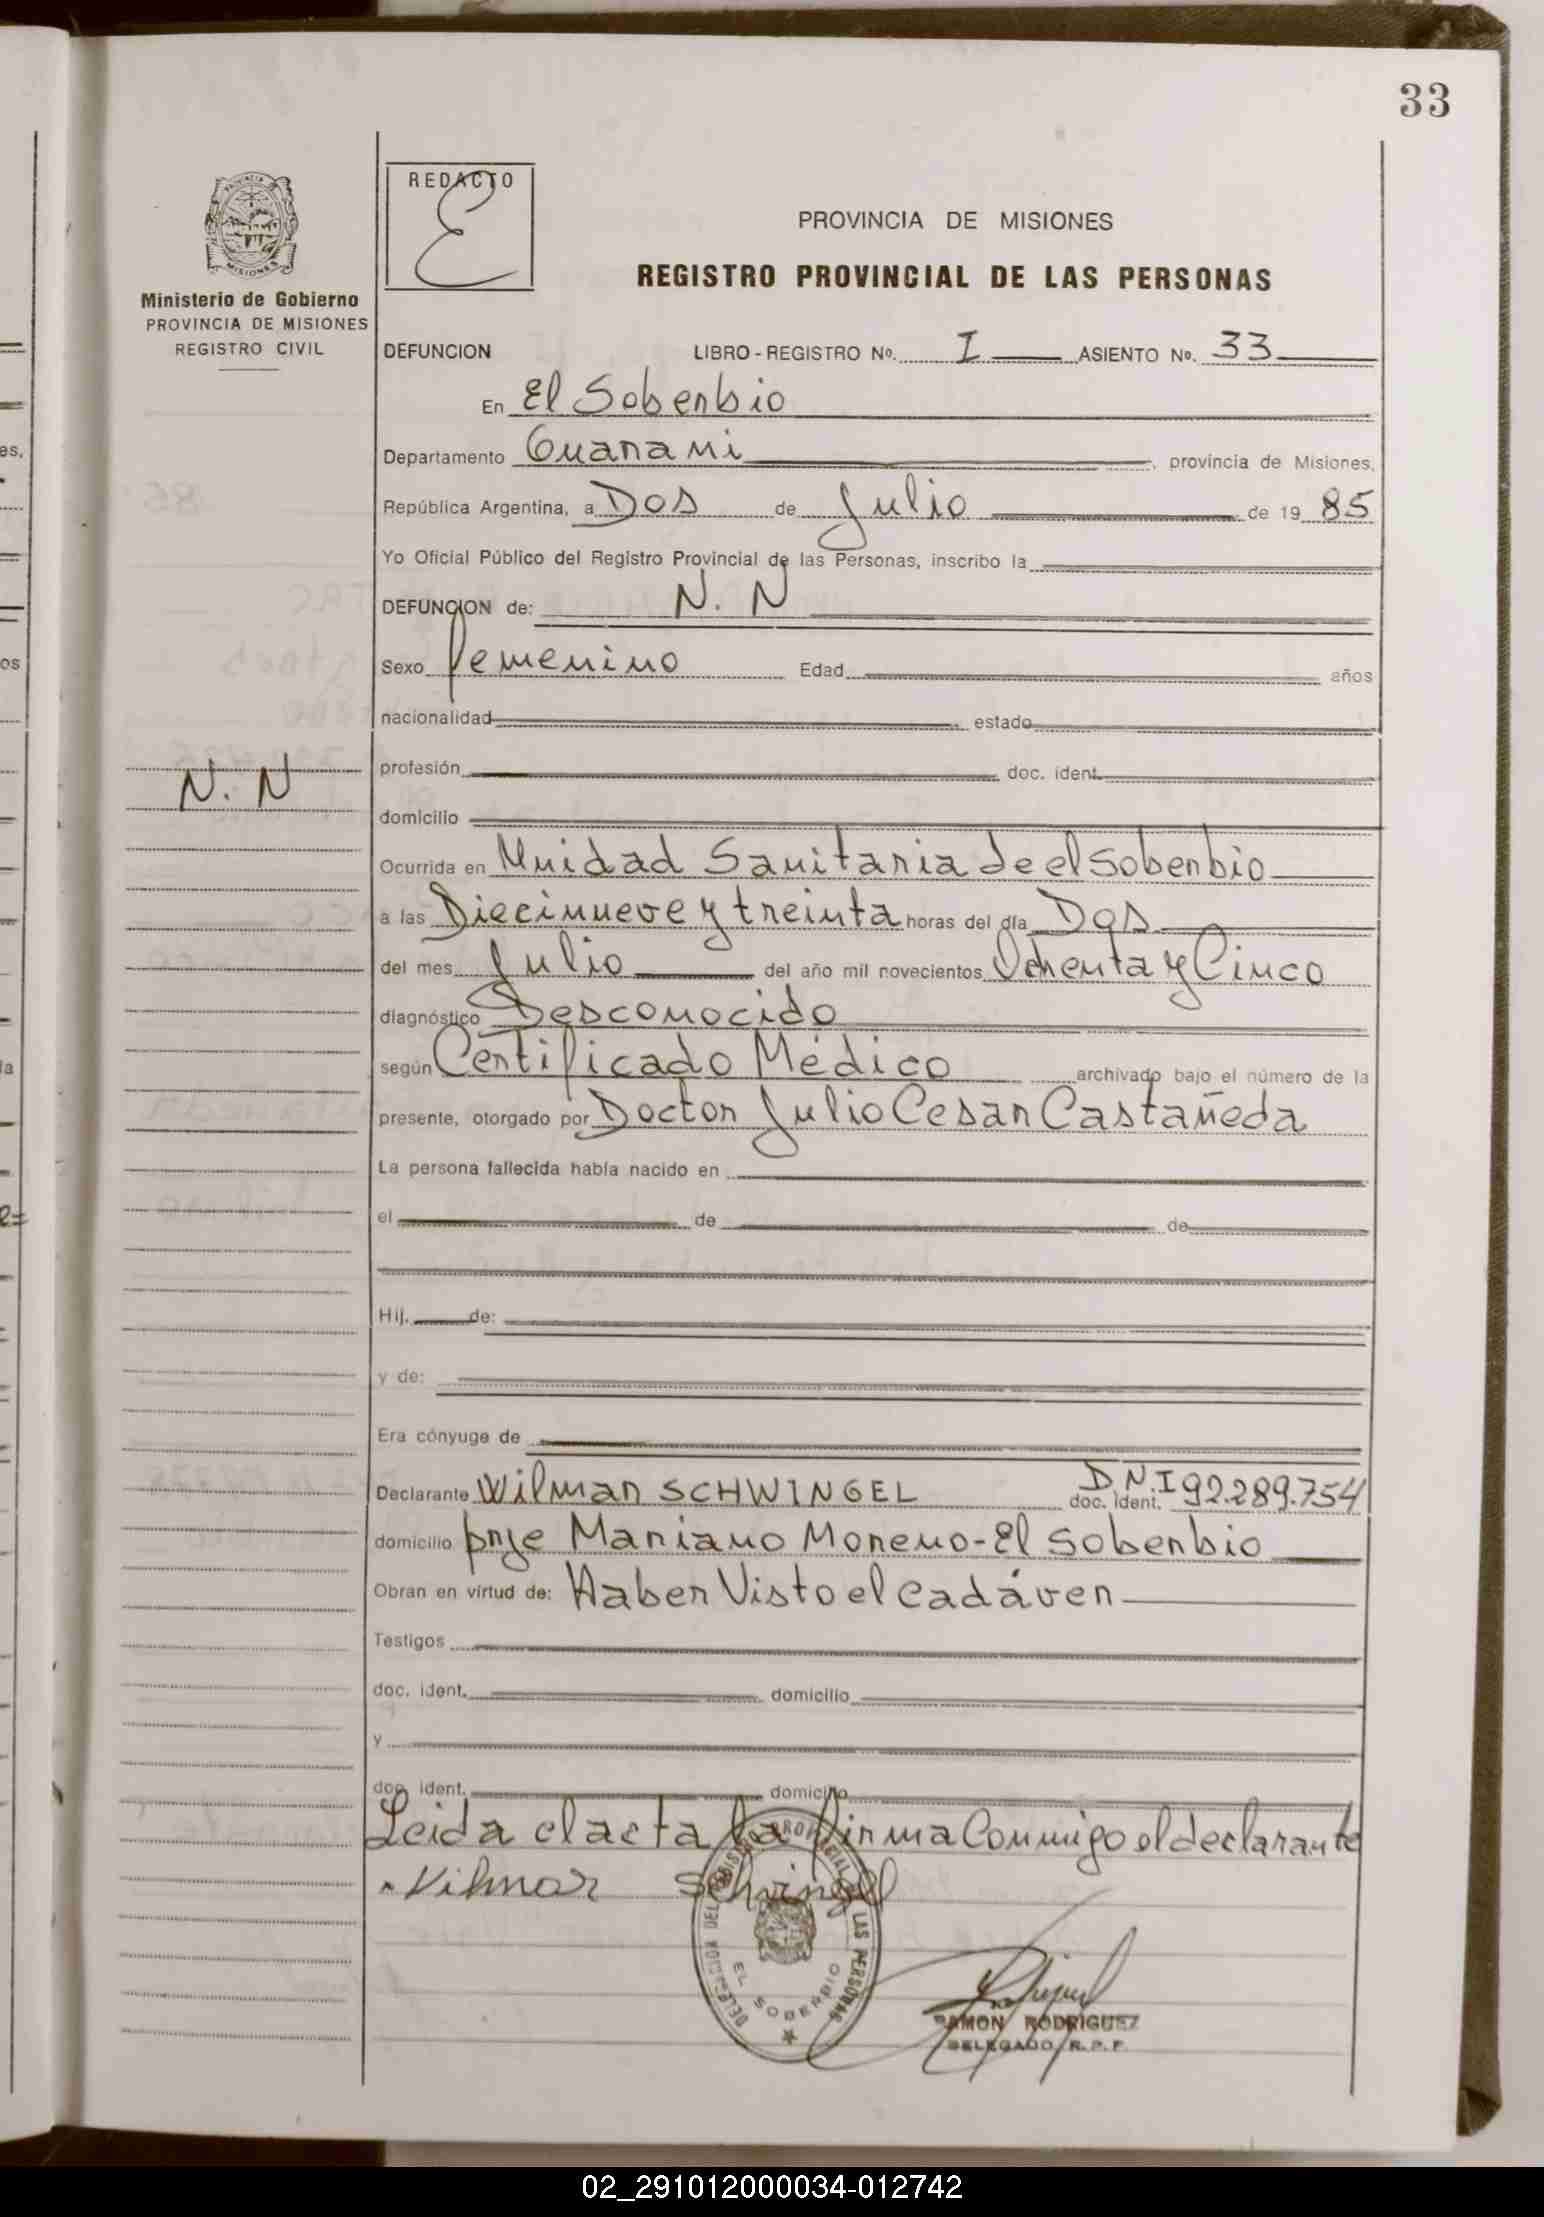 33
REDACTO
E
PROVINCIA DE MISIONES
REGISTRO PROVINCIAL DE LAS PERSONAS
Ministerio de Gobierno
PROVINCIA DE MISIONES
REGISTRO CIVIL
DEFUNCION LIBRO - REGISTRO Nº. I ASIENTO Nº. 33
En El Soberbio
Departamento Guarani, provincia de Misiones,
República Argentina, a Dos de Julio de 19 85
Yo Oficial Público del Registro Provincial de las Personas, inscribo la
DEFUNCION de: N. N
Sexo femenino Edad años
nacionalidad estado
N. N
profesión doc. ident.
domicilio
Ocurrida en Unidad Sanitaria de el Soberbio
a las Diecinueve y treinta horas del día Dos
del mes Julio del año mil novecientos Ochenta y Cinco
diagnóstico Desconocido
según Certificado Médico archivado bajo el número de la
presente, otorgado por Doctor Julio Cesar Castañeda
La persona fallecida había nacido en
el de de
Hij. de:
y de:
Era cónyuge de
Declarante Wilmar SCHWINGEL doc. ident. D.N.I 92.289.754
domicilio prje Mariano Moreno - El Soberbio
Obran en virtud de: Haber Visto el Cadáver
Testigos
doc. ident. domicilio
y
doc. ident. domicilio
Leida el acta la firma Conmigo el declarante
Vilmar Schvingel
DELEGACION DEL REGISTRO PROVINCIAL DE LAS PERSONAS
EL SOBERBIO
RAMON RODRIGUEZ
DELEGADO R.P.P.
02_291012000034-012742